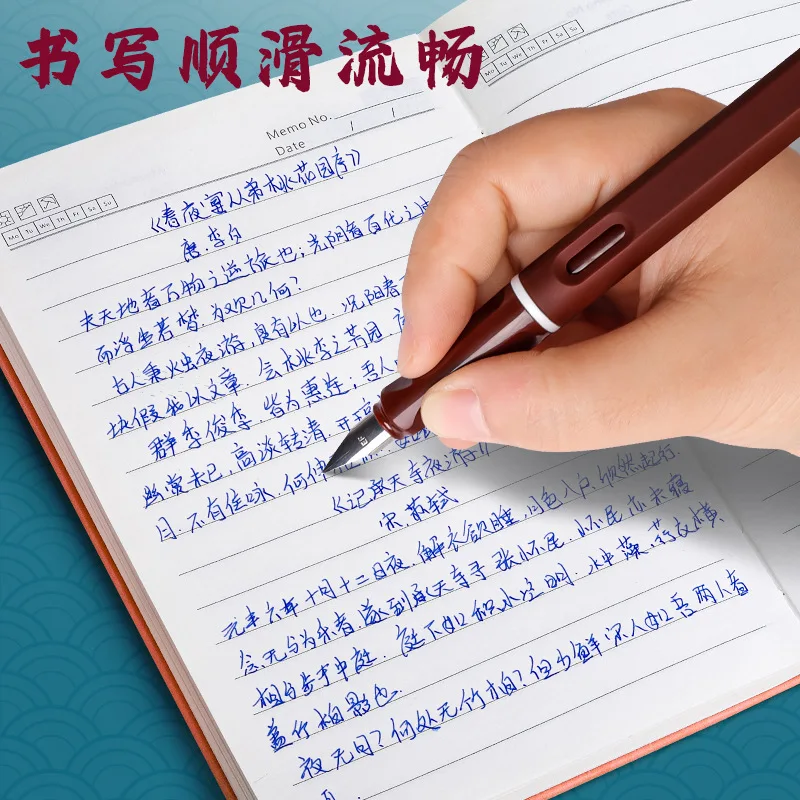 书写顺滑流畅
Memo No.
Date / /
Mo Tu We Th Fr Sa Su
Mo Tu We Th Fr Sa Su
《春夜宴从弟桃花园序》
唐.李白
夫天地者万物之逆旅也;光阴者百代之
而浮生若梦,为欢几何?
古人秉烛夜游,良有以也.况阳春
块假我以文章.会桃李之芳园,
群季俊秀,皆为惠连;吾人
幽赏未已,高谈转清.开琼
日.不有佳咏,何伸
《记承天寺夜游》
宋.苏轼
元丰六年十月十二日夜.解衣欲睡,月色入户,欣然起行.
念无与为乐者,遂到承天寺寻张怀民.怀民亦未寝
相与步于中庭.庭下如积水空明.水中藻、荇交横
盖竹柏影也.
夜无月?何处无竹柏?但少闲人如吾两人者